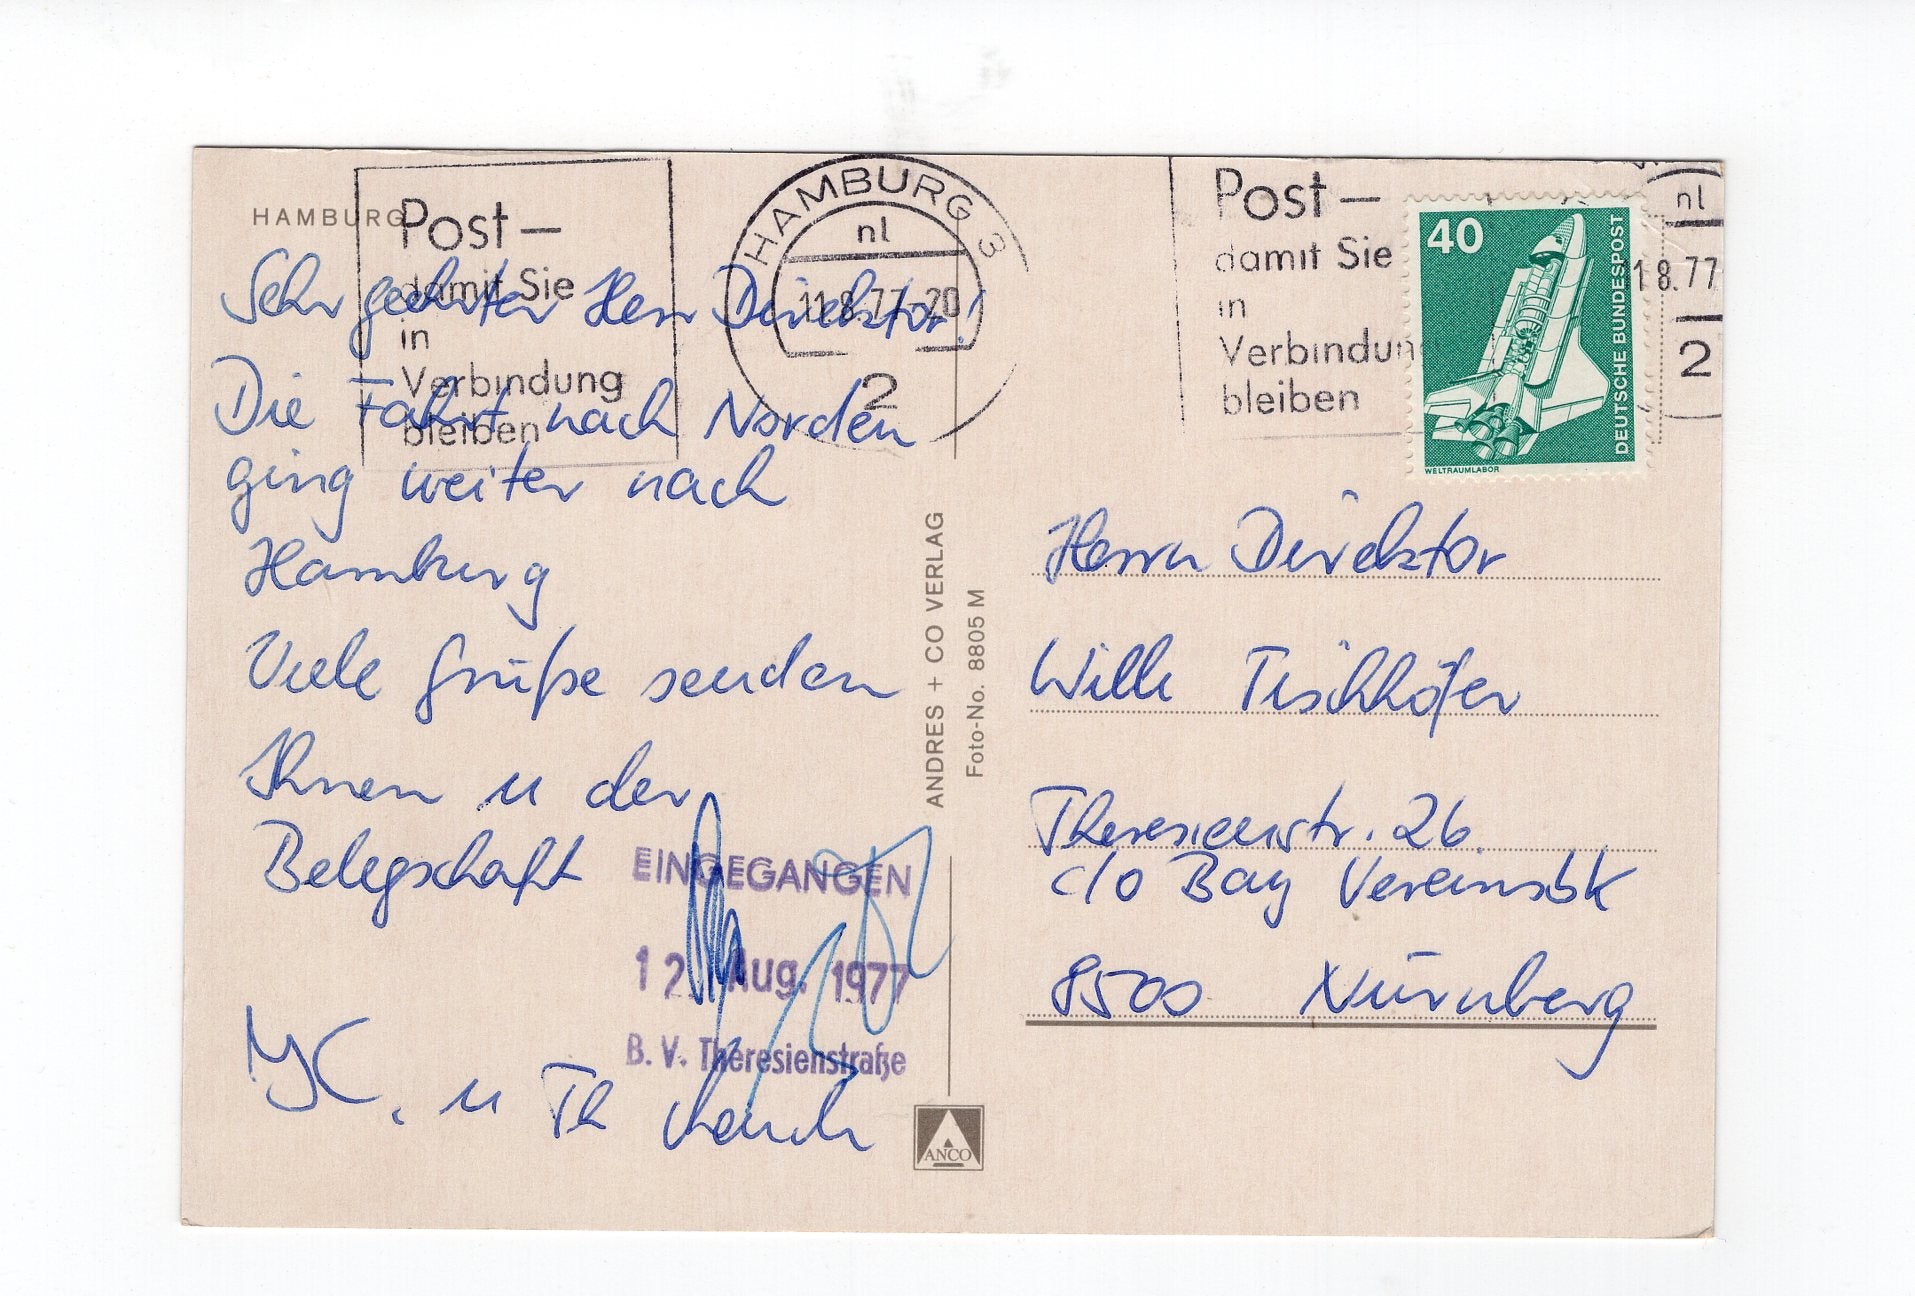 HAMBURG
Post –
damit Sie
in
Verbindung
bleiben
HAMBURG 3
nl
11.8.77-20
2
Post –
damit Sie
in
Verbindung
bleiben
nl
11.8.77
2
40
DEUTSCHE BUNDESPOST
WELTRAUMLABOR
Sehr geehrter Herr Direktor!
Die Fahrt nach Norden
ging weiter nach
Hamburg
Viele Grüße senden
Ihnen u der
Belegschaft
u Th
EINGEGANGEN
12. Aug. 1977
B. V. Theresienstraße
ANDRES + CO VERLAG
Foto-No. 8805 M
ANCO
Herrn Direktor
Willi Tischhöfer
Theresienstr. 26.
c/o Bay Vereinsbk
8500 Nürnberg